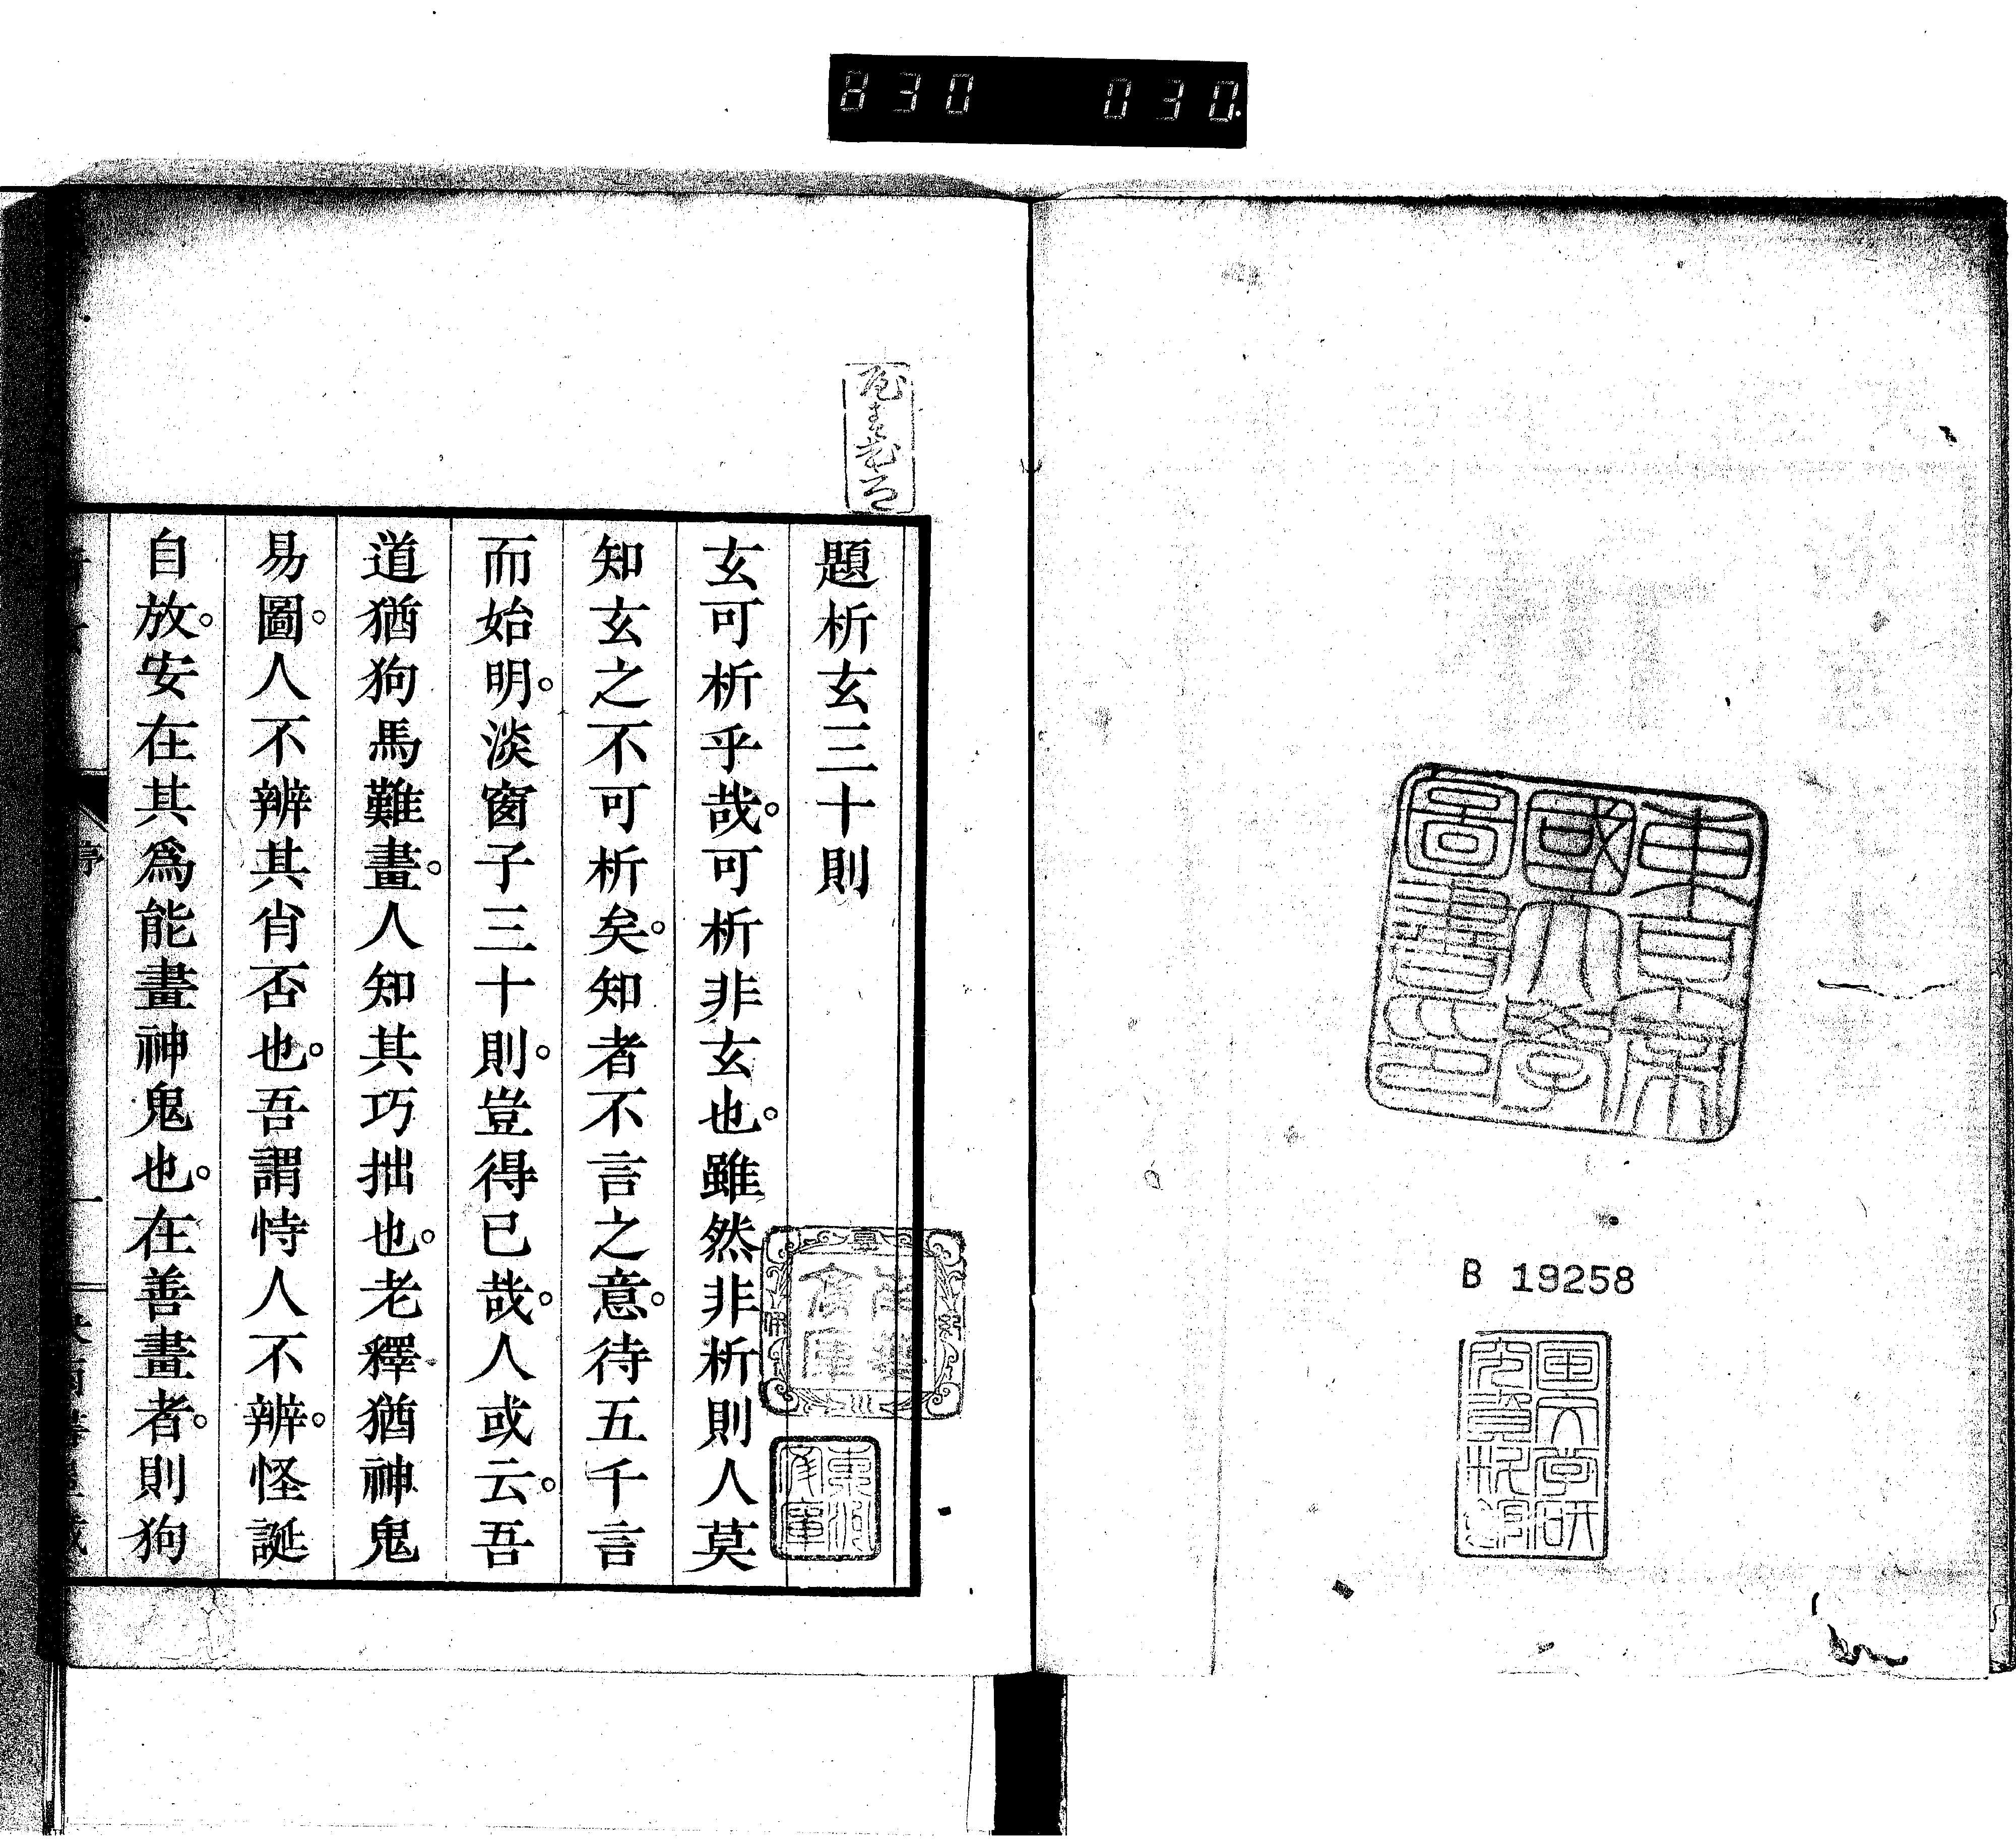 830 030.
東京帝
國大學
圖書印
B 19258
題析玄三十則
玄可析乎哉。可析非玄也。雖然非析則人莫
知玄之不可析矣。知者不言之意。待五千言
而始明。淡窗子三十則。豈得已哉。人或云。吾
道猶狗馬難畫。人知其巧拙也。老釋猶神鬼
易圖。人不辨其肖否也。吾謂恃人不辨。怪誕
自放。安在其爲能畫神鬼也。在善畫者。則狗
序
一